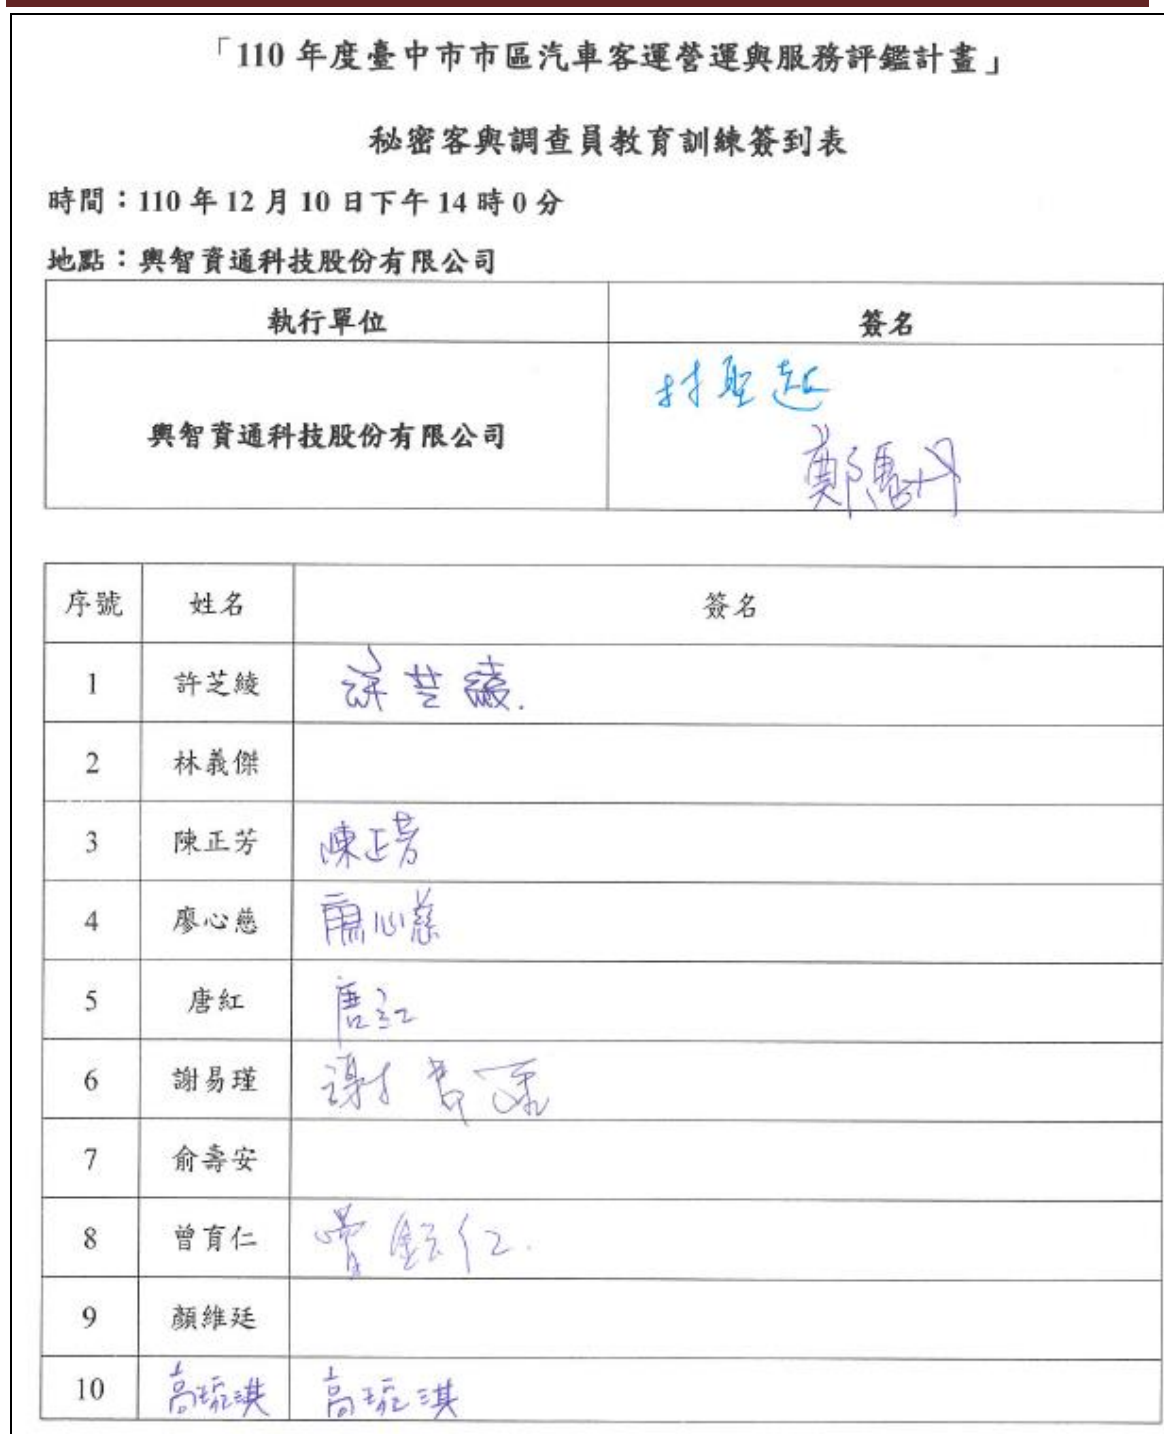 「110 年度臺中市市區汽車客運營運與服務評鑑計畫」
秘密客與調查員教育訓練簽到表
時間：110 年 12 月 10 日下午 14 時 0 分
地點：興智資通科技股份有限公司
執行單位 簽名
興智資通科技股份有限公司
序號 姓名 簽名
1 許芝綾 許芝綾.
2 林義傑
3 陳正芳 陳正芳
4 廖心慈 廖心慈
5 唐紅 唐紅
6 謝易瑾 謝
7 俞壽安
8 曾育仁 曾 仁.
9 顏維廷
10 高琬淇 高琬淇